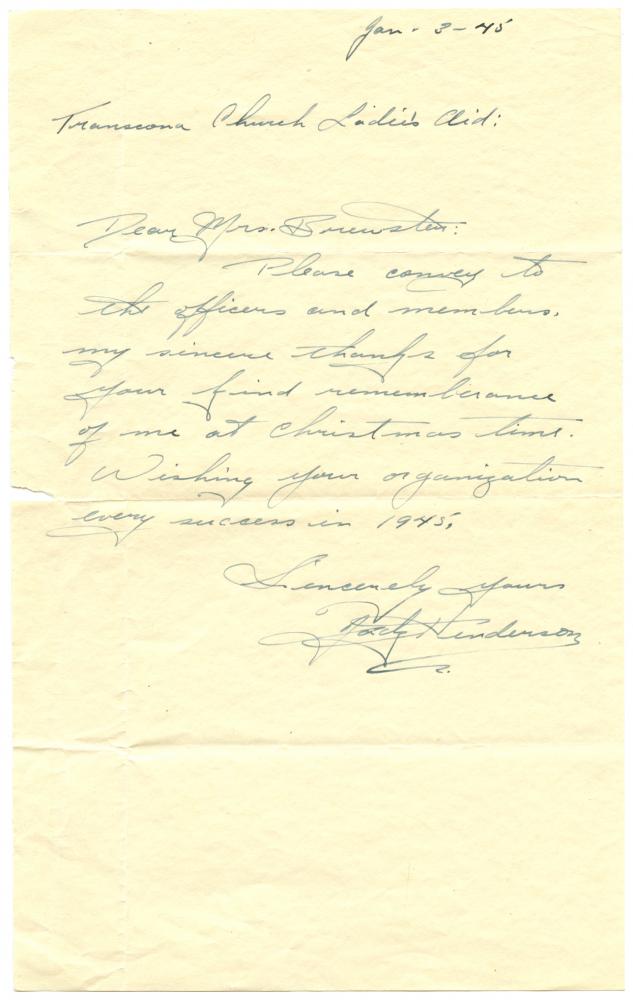 Jan. 3-45
Transcona Church Ladie's Aid:
Dear Mrs. Brewster:
Please convey to
the officers and members.
my sincere thanks for
your kind rememberance
of me at Christmas time.
Wishing your organization
every success in 1945,
Sincerely yours
Henderson